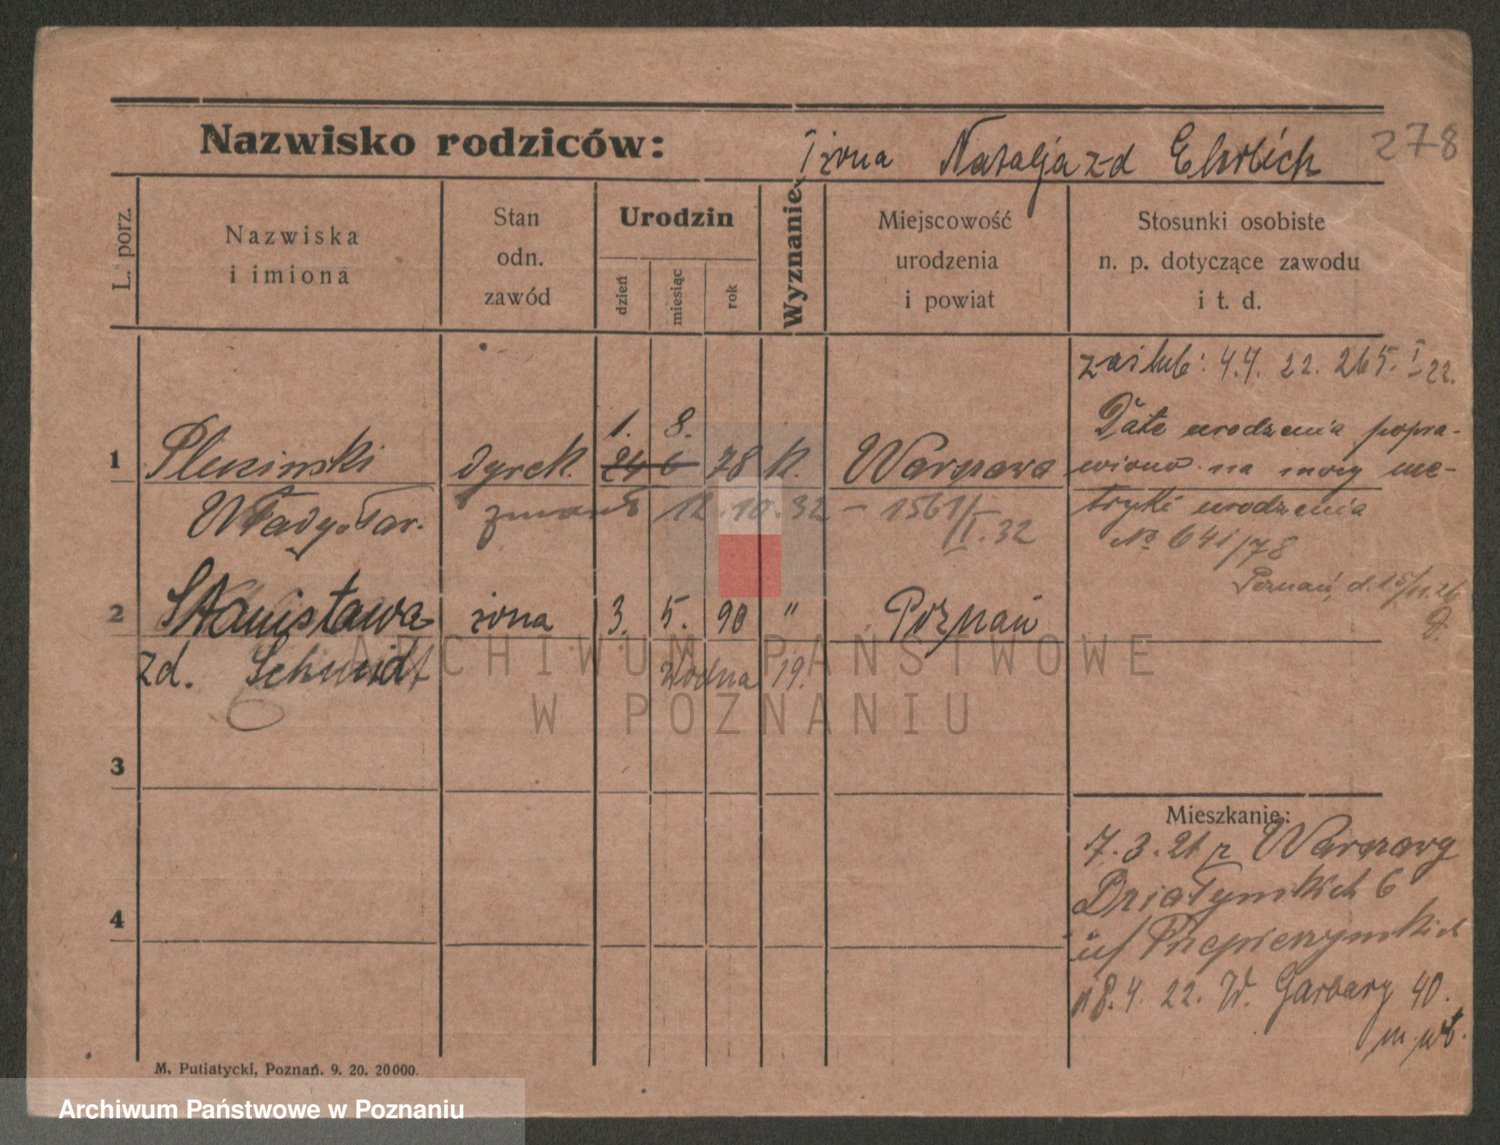 Nazwisko rodziców: żona Natalja zd Ehrlich 278
L. porz.
Nazwiska
i imiona
Stan
odn.
zawód
Urodzin
dzień
miesiąc
rok
Wyznanie
Miejscowość
urodzenia
i powiat
Stosunki osobiste
n. p. dotyczące zawodu
i t. d.
zaślub: 4.4. 22. 265. I 22.
Date urodzenia popra-
wiono na mocy me-
tryki urodzenia
No 641/78
Poznań, d.
1. 8.
1 dyrek. 24 6 78 k. Warszawa
zmarł 12.10.32 – 1561/I.32
2 Stanisława żona 3. 5. 90 " Poznań
zd. Schmidt Wodna 19.
3
4
Mieszkanie:
7.3.21 z Warszawy
Działyńskich 6
u/
18.4.22. W. Garbary 40.
M. Putiatycki, Poznań. 9. 20. 20000.
ARCHIWUM PAŃSTWOWE
W POZNANIU
Archiwum Państwowe w Poznaniu